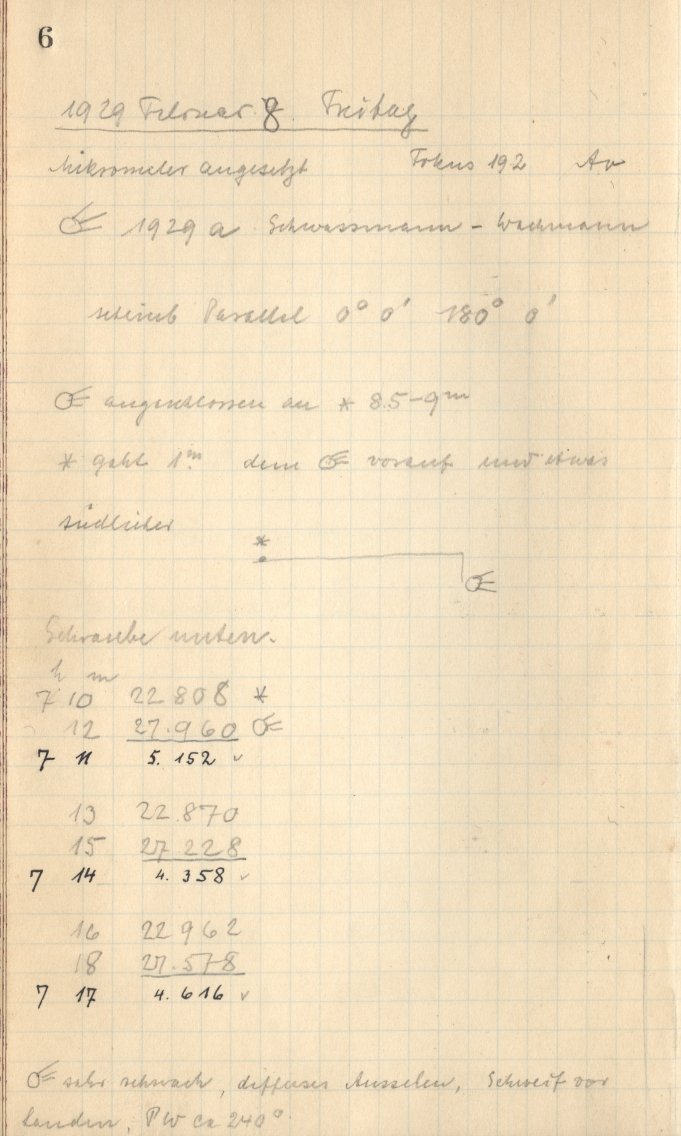 6
1929 Februar 8. Freitag
Mikrometer angesetzt Fokus 192
☄ 1929 a Schwassmann - Wachmann
Parallel 0° 0' 180° 0'
☄ angeschlossen an * 8.5-9ᵐ
* geht 1ᵐ. dem ☄ vorauf und etwas
südlicher
*
☄
Schraube unten.
h m
7 10 22 808 *
12 27.960 ☄
7 11 5. 152 ✓
13 22.870
15 27 228
7 14 4. 358 ✓
16 22 962
18 27.578
7 17 4. 616 ✓
☄ sehr schwach, diffuses Aussehen, Schweif vor
handen, PW ca 240°.